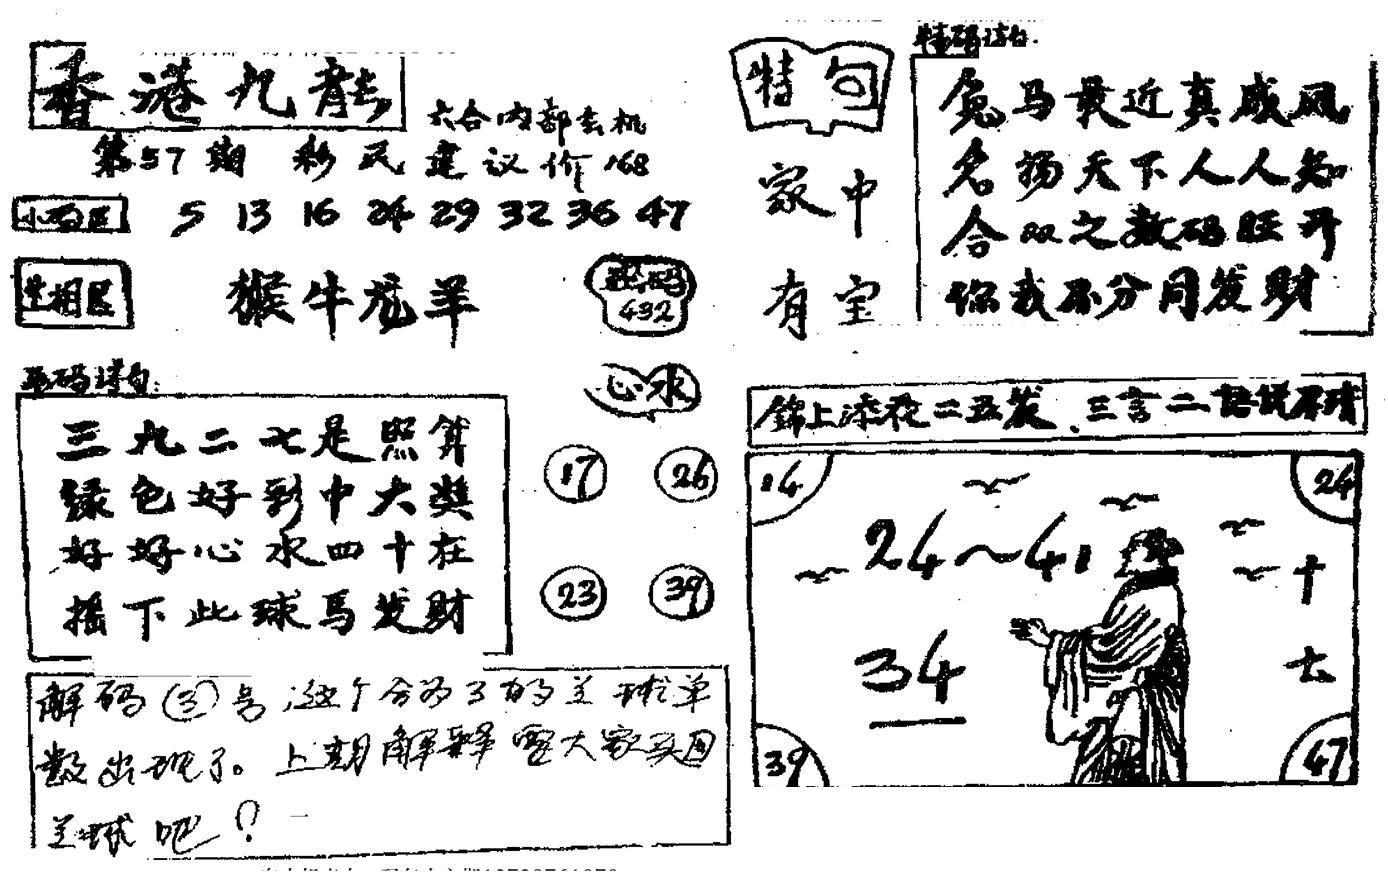 香港九龙
六合内部玄机
第57期 彩民建议价168
小码区 5 13 16 24 29 32 36 47
生相区 猴牛龙羊
432
心水
17 26
23 39
三九二七是照算
绿色好彩中大奖
好好心水四十在
摇下此球马发财
解码(3)号:这个合为了的兰球单
数出现了。上期解释 大家买回
兰球吧?
特句
家中
有宝
特码诗句:
兔马最近真威风
名扬天下人人知
合双之数码旺开
你我不分同发财
錦上添花二五发、三言二語说
14 24
24~41
34
十
去
39 47